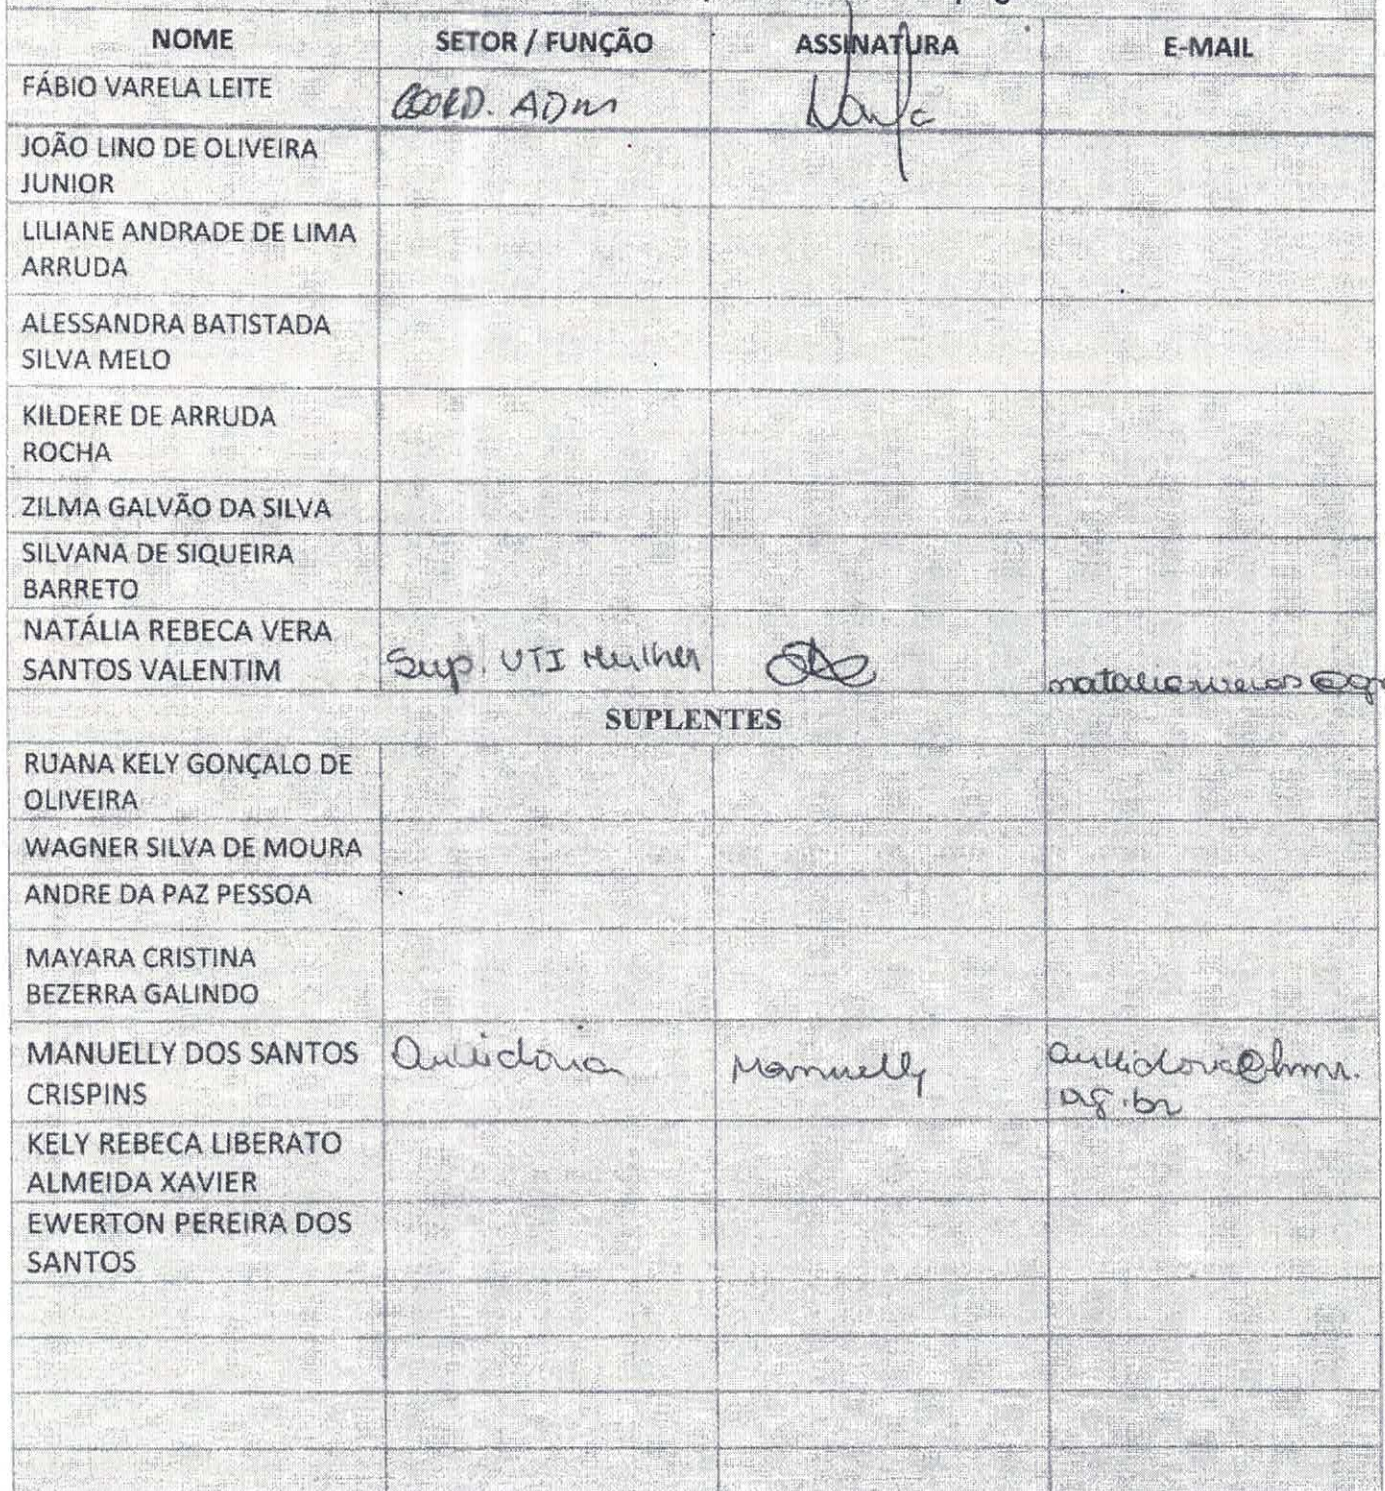 NOME SETOR / FUNÇÃO ASSINATURA E-MAIL
FÁBIO VARELA LEITE COORD. ADM
JOÃO LINO DE OLIVEIRA
JUNIOR
LILIANE ANDRADE DE LIMA
ARRUDA
ALESSANDRA BATISTADA
SILVA MELO
KILDERE DE ARRUDA
ROCHA
ZILMA GALVÃO DA SILVA
SILVANA DE SIQUEIRA
BARRETO
NATÁLIA REBECA VERA
SANTOS VALENTIM Sup. UTI Mulher
SUPLENTES
RUANA KELY GONÇALO DE
OLIVEIRA
WAGNER SILVA DE MOURA
ANDRE DA PAZ PESSOA
MAYARA CRISTINA
BEZERRA GALINDO
MANUELLY DOS SANTOS Ouvidoria Manuelly ouvidoria@hmr.
CRISPINS org.br
KELY REBECA LIBERATO
ALMEIDA XAVIER
EWERTON PEREIRA DOS
SANTOS